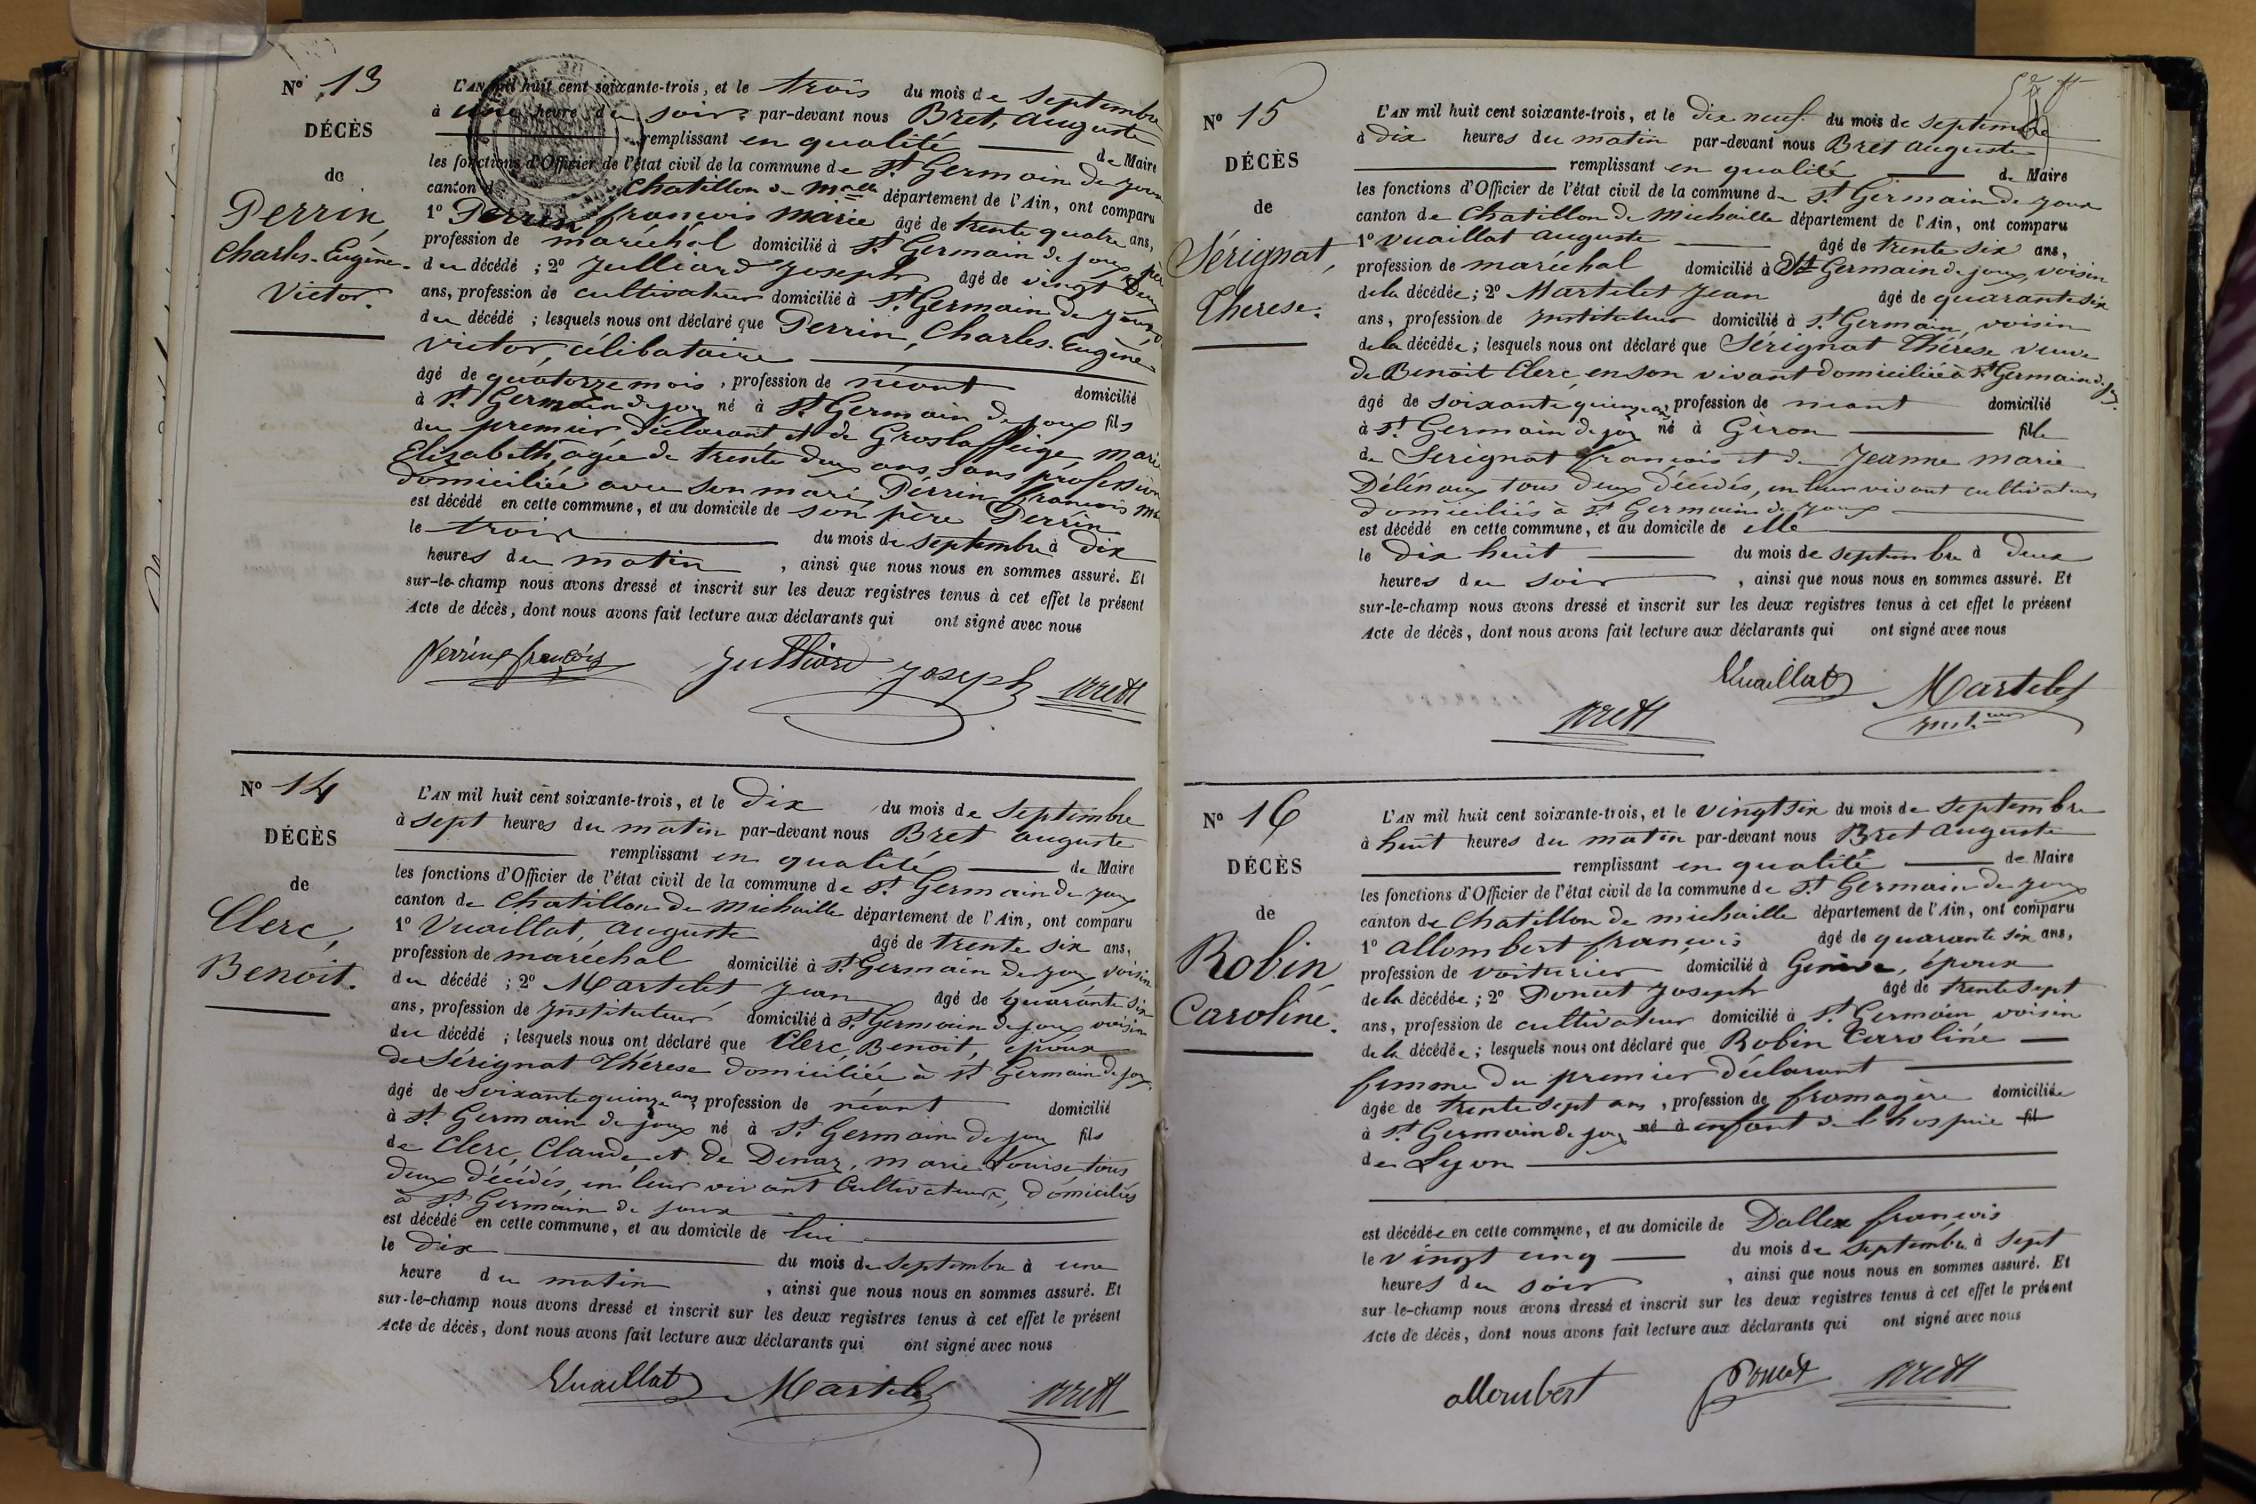 Nº 13
DÉCÈS
de
Perrin,
Charles-Eugène-
Victor.
L'AN mil huit cent soixante-trois, et le trois du mois de Septembre
à une heure du soir par-devant nous Bret, Auguste
remplissant en qualité de Maire
les fonctions d'Officier de l'état civil de la commune de St Germain de Joux
canton de Chatillon de Mlle département de l'Ain, ont comparu
1º Perrin françois Marie âgé de trente quatre ans,
profession de maréchal domicilié à St Germain de Joux, père
du décédé ; 2º Julliard Joseph âgé de vingt deux
ans, profession de cultivateur domicilié à St Germain de Joux,
du décédé ; lesquels nous ont déclaré que Perrin, Charles-Eugène
Victor, célibataire
âgé de quatorze mois, profession de néant domicilié
à St Germain de joux né à St Germain de joux fils
du premier déclarant et de Groslaffeige Marie
Elizabeth, agée de trente deux ans, sans profession
domiciliée avec son mari Perrin françois
est décédé en cette commune, et au domicile de son père Perrin
le trois du mois de septembre à dix
heures du matin, ainsi que nous nous en sommes assuré. Et
sur-le-champ nous avons dressé et inscrit sur les deux registres tenus à cet effet le présent
Acte de décès, dont nous avons fait lecture aux déclarants qui ont signé avec nous
Perrin françois Julliard Joseph Brett
Nº 14
DÉCÈS
de
Clerc,
Benoit.
L'AN mil huit cent soixante-trois, et le dix du mois de Septembre
à sept heures du matin par-devant nous Bret Auguste
remplissant en qualité de Maire
les fonctions d'Officier de l'état civil de la commune de St Germain de joux
canton de Chatillon de Michaille département de l'Ain, ont comparu
1º Vuaillat, Auguste âgé de trente six ans,
profession de maréchal domicilié à St Germain de joux, voisin
du décédé ; 2º Martelet Jean âgé de quarante six
ans, profession de Instituteur domicilié à St Germain de joux voisin
du décédé ; lesquels nous ont déclaré que Clerc, Benoit, époux
de Sérignat Thérese domiciliée à St Germain de joux,
âgé de soixante quinze ans, profession de néant domicilié
à St Germain de joux né à St Germain de joux fils
de Clerc, Claude, et de Denaz, Marie Louise tous
deux décédés, en leur vivant Cultivateurs, domiciliés
à St Germain de joux
est décédé en cette commune, et au domicile de lui
le dix du mois de Septembre à une
heure du matin, ainsi que nous nous en sommes assuré. Et
sur-le-champ nous avons dressé et inscrit sur les deux registres tenus à cet effet le présent
Acte de décès, dont nous avons fait lecture aux déclarants qui ont signé avec nous
Vuaillat Martelet Brett
Nº 15
DÉCÈS
de
Sérignat,
Therese.
L'AN mil huit cent soixante-trois, et le dix neuf du mois de septembre
à dix heures du matin par-devant nous Bret Auguste
remplissant en qualité de Maire
les fonctions d'Officier de l'état civil de la commune de St Germain de joux
canton de Chatillon de Michaille département de l'Ain, ont comparu
1º Vuaillat Auguste âgé de trente six ans,
profession de maréchal domicilié à St Germain de joux, voisin
de la décédée ; 2º Martelet Jean âgé de quarante six
ans, profession de Instituteur domicilié à St Germain, voisin
de la décédée ; lesquels nous ont déclaré que Sérignat Thérese veuve
de Benoit Clerc, en son vivant domiciliée à St Germain de j.
âgé de soixante quinze ans profession de néant domicilié
à St Germain de joux né à Giron fille
de Serignat françois et de Jeanne Marie
Délénaux tous deux décédés, en leur vivant cultivateurs
domiciliés à St Germain de joux
est décédé en cette commune, et au domicile de elle
le dix huit du mois de septembre à deux
heures du soir, ainsi que nous nous en sommes assuré. Et
sur-le-champ nous avons dressé et inscrit sur les deux registres tenus à cet effet le présent
Acte de décès, dont nous avons fait lecture aux déclarants qui ont signé avec nous
Vuaillat Martelet
Brett
Nº 16
DÉCÈS
de
Robin,
Caroline.
L'AN mil huit cent soixante-trois, et le vingt six du mois de Septembre
à huit heures du matin par-devant nous Bret Auguste
remplissant en qualité de Maire
les fonctions d'Officier de l'état civil de la commune de St Germain de joux
canton de Chatillon de Michaille département de l'Ain, ont comparu
1º Allombert françois âgé de quarante six ans,
profession de voiturier domicilié à époux
de la décédée ; 2º Poncet Joseph âgé de trente sept
ans, profession de cultivateur domicilié à St Germain voisin
de la décédée ; lesquels nous ont déclaré que Robin Caroline
femme du premier déclarant
âgée de trente sept ans, profession de fromagère domiciliée
à St Germain de joux né à enfant de l'hospice fil
de Lyon
est décédée en cette commune, et au domicile de Dallex françois
le vingt cinq du mois de septembre à sept
heures du soir, ainsi que nous nous en sommes assuré. Et
sur-le-champ nous avons dressé et inscrit sur les deux registres tenus à cet effet le présent
Acte de décès, dont nous avons fait lecture aux déclarants qui ont signé avec nous
Allombert Poncet Brett